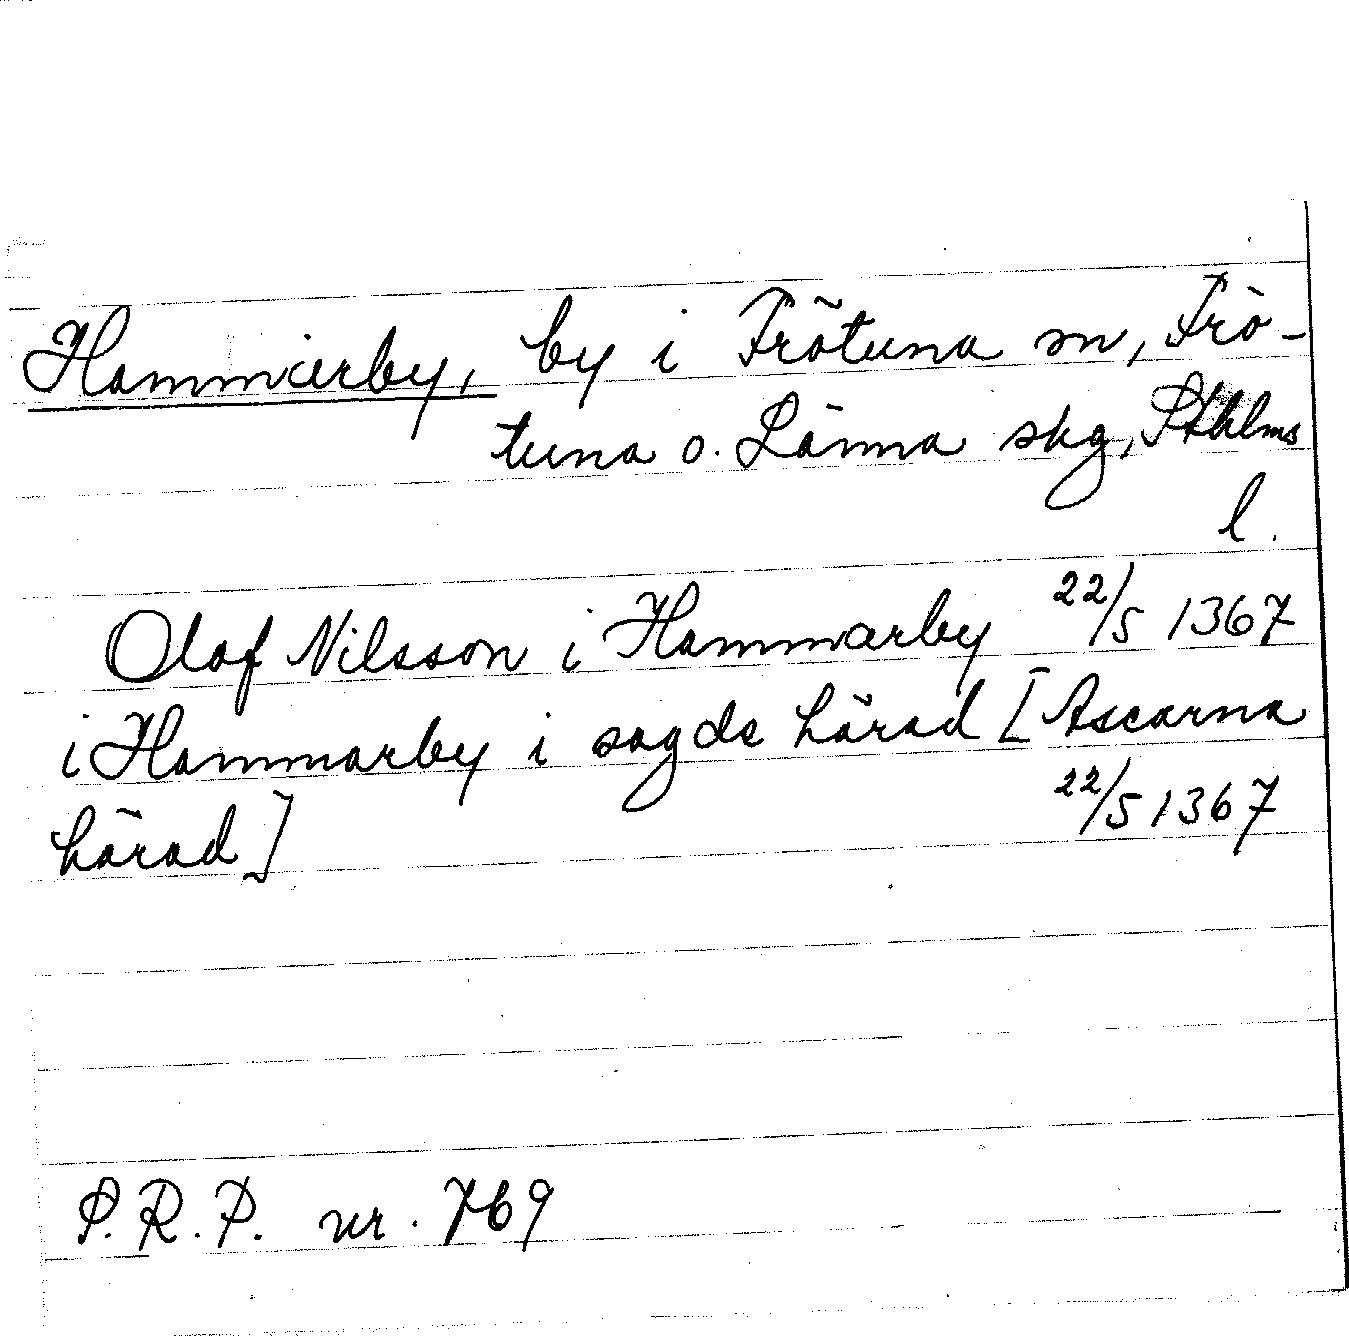 Hammarby, by i Frötuna sn, Frö-
tuna o. Länna skg, Sthlms
l.
Olof Nilsson i Hammarby 22/5 1367
i Hammarby i sagde härad [Ascarna
härad] 22/5 1367
S.R.P. nr. 769